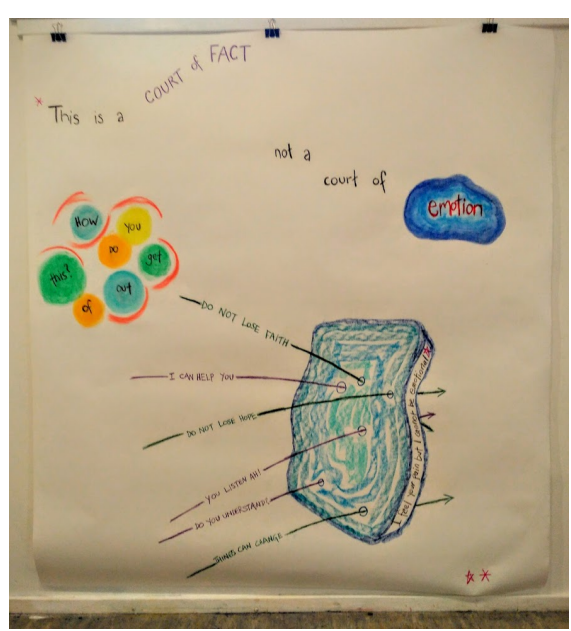 COURT of FACT
This is a
not a
court of
emotion
HOW
YOU
DO
get
this?
out
of
DO NOT LOSE FAITH
I CAN HELP YOU
DO NOT LOSE HOPE
YOU LISTEN AH!
DO YOU UNDERSTAND?
THINGS CAN CHANGE
I feel your pain but I cannot be emotional